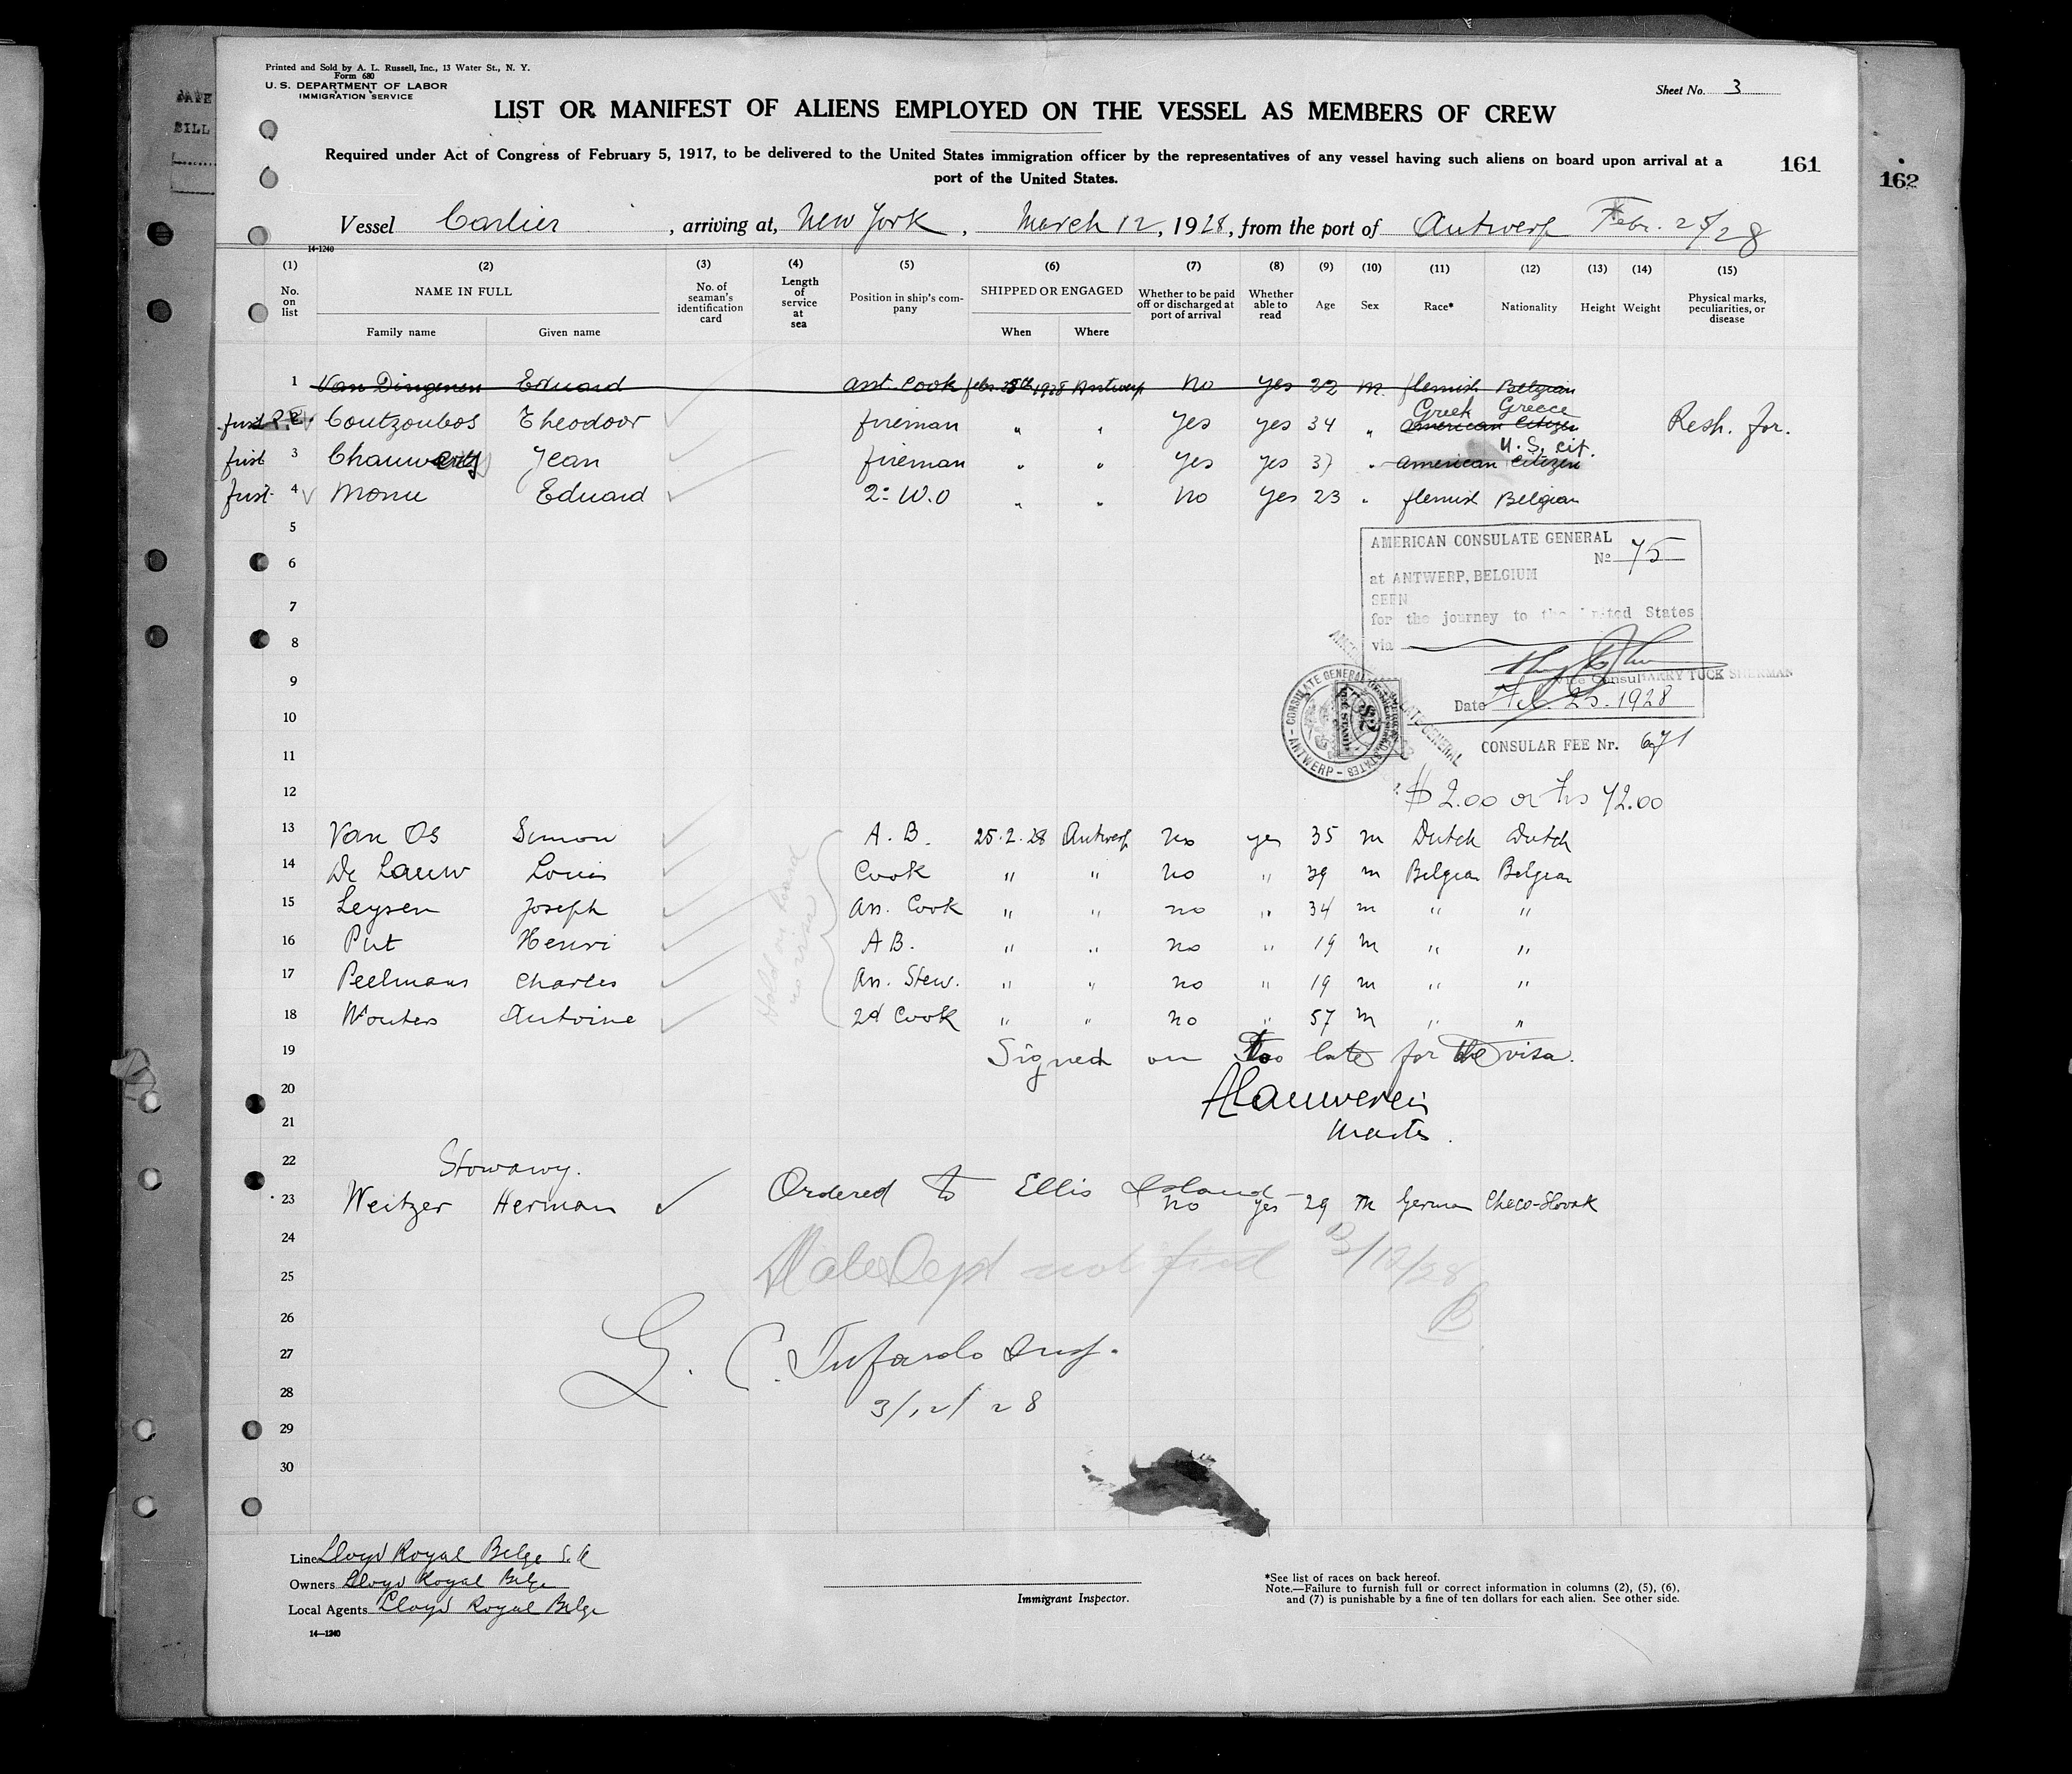 Printed and Sold by A. L. Russell, Inc., 13 Water St., N. Y.
Form 680
U. S. DEPARTMENT OF LABOR
IMMIGRATION SERVICE
Sheet No. 3
LIST OR MANIFEST OF ALIENS EMPLOYED ON THE VESSEL AS MEMBERS OF CREW
Required under Act of Congress of February 5, 1917, to be delivered to the United States immigration officer by the representatives of any vessel having such aliens on board upon arrival at a
port of the United States.
161
162
Vessel Carlier, arriving at, New York, March 12, 1928, from the port of Antwerp Febr. 25/28
14-1240
(1) No. on list
(2) NAME IN FULL Family name Given name
(3) No. of seaman's identification card
(4) Length of service at sea
(5) Position in ship's company
(6) SHIPPED OR ENGAGED When Where
(7) Whether to be paid off or discharged at port of arrival
(8) Whether able to read
(9) Age
(10) Sex
(11) Race*
(12) Nationality
(13) Height
(14) Weight
(15) Physical marks, peculiarities, or disease
1 Van Dingenen Eduard ast. Cook febr. 25th 1928 Antwerp No yes 22 m. flemish Belgian
Greek Greece
first 2 Coutzoubos Theodoor fireman " " yes yes 34 " american Citizen Resh. for.
U.S. cit.
first 3 Jean fireman " " yes yes 37 " american Citizen
first 4 Eduard 2e W.O " " No yes 23 " flemish Belgian
5
6
7
8
9
10
11
12
AMERICAN CONSULATE GENERAL
No 75
at ANTWERP, BELGIUM
SEEN
for the journey to the United States
via
Vice Consul HARRY TUCK SHERMAN
Date Feb. 25. 1928
CONSULAR FEE Nr. 671
$ 2.00 or frs 72.00
13 Van Os Simon A. B. 25.2.28 Antwerp no yes 35 m Dutch Dutch
14 De Lauw Louis Cook " " no " 39 m Belgian Belgian
15 Leysen Joseph Ass. Cook " " no " 34 m " "
16 Put Henri A B. " " no " 19 m " "
17 Peelmans Charles Ass. Stew. " " no " 19 m " "
18 Wouters Antoine 2d Cook " " no " 57 m " "
Hold on board
no visa
19 Signed on too late for the visa.
20
21 Master.
22 Stowawy.
Ordered to Ellis Island
23 Weitzer Herman no yes 29 m German Checo-Slovak
24
25 3/12/28
26 B
27
28 3/12/28
29
30
Line Lloyd Royal Belge S.A
Owners Lloyd Royal Belge
Local Agents Lloyd Royal Belge
14-1240
Immigrant Inspector.
*See list of races on back hereof.
Note.—Failure to furnish full or correct information in columns (2), (5), (6),
and (7) is punishable by a fine of ten dollars for each alien. See other side.